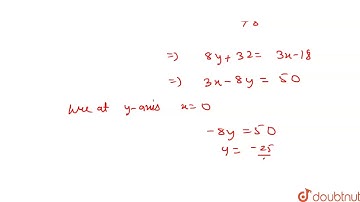 =) 8y + 32 = 3x - 18
=) 3x - 8y = 50
at y-axis x = 0
-8y = 50
y = -25
doubtnut